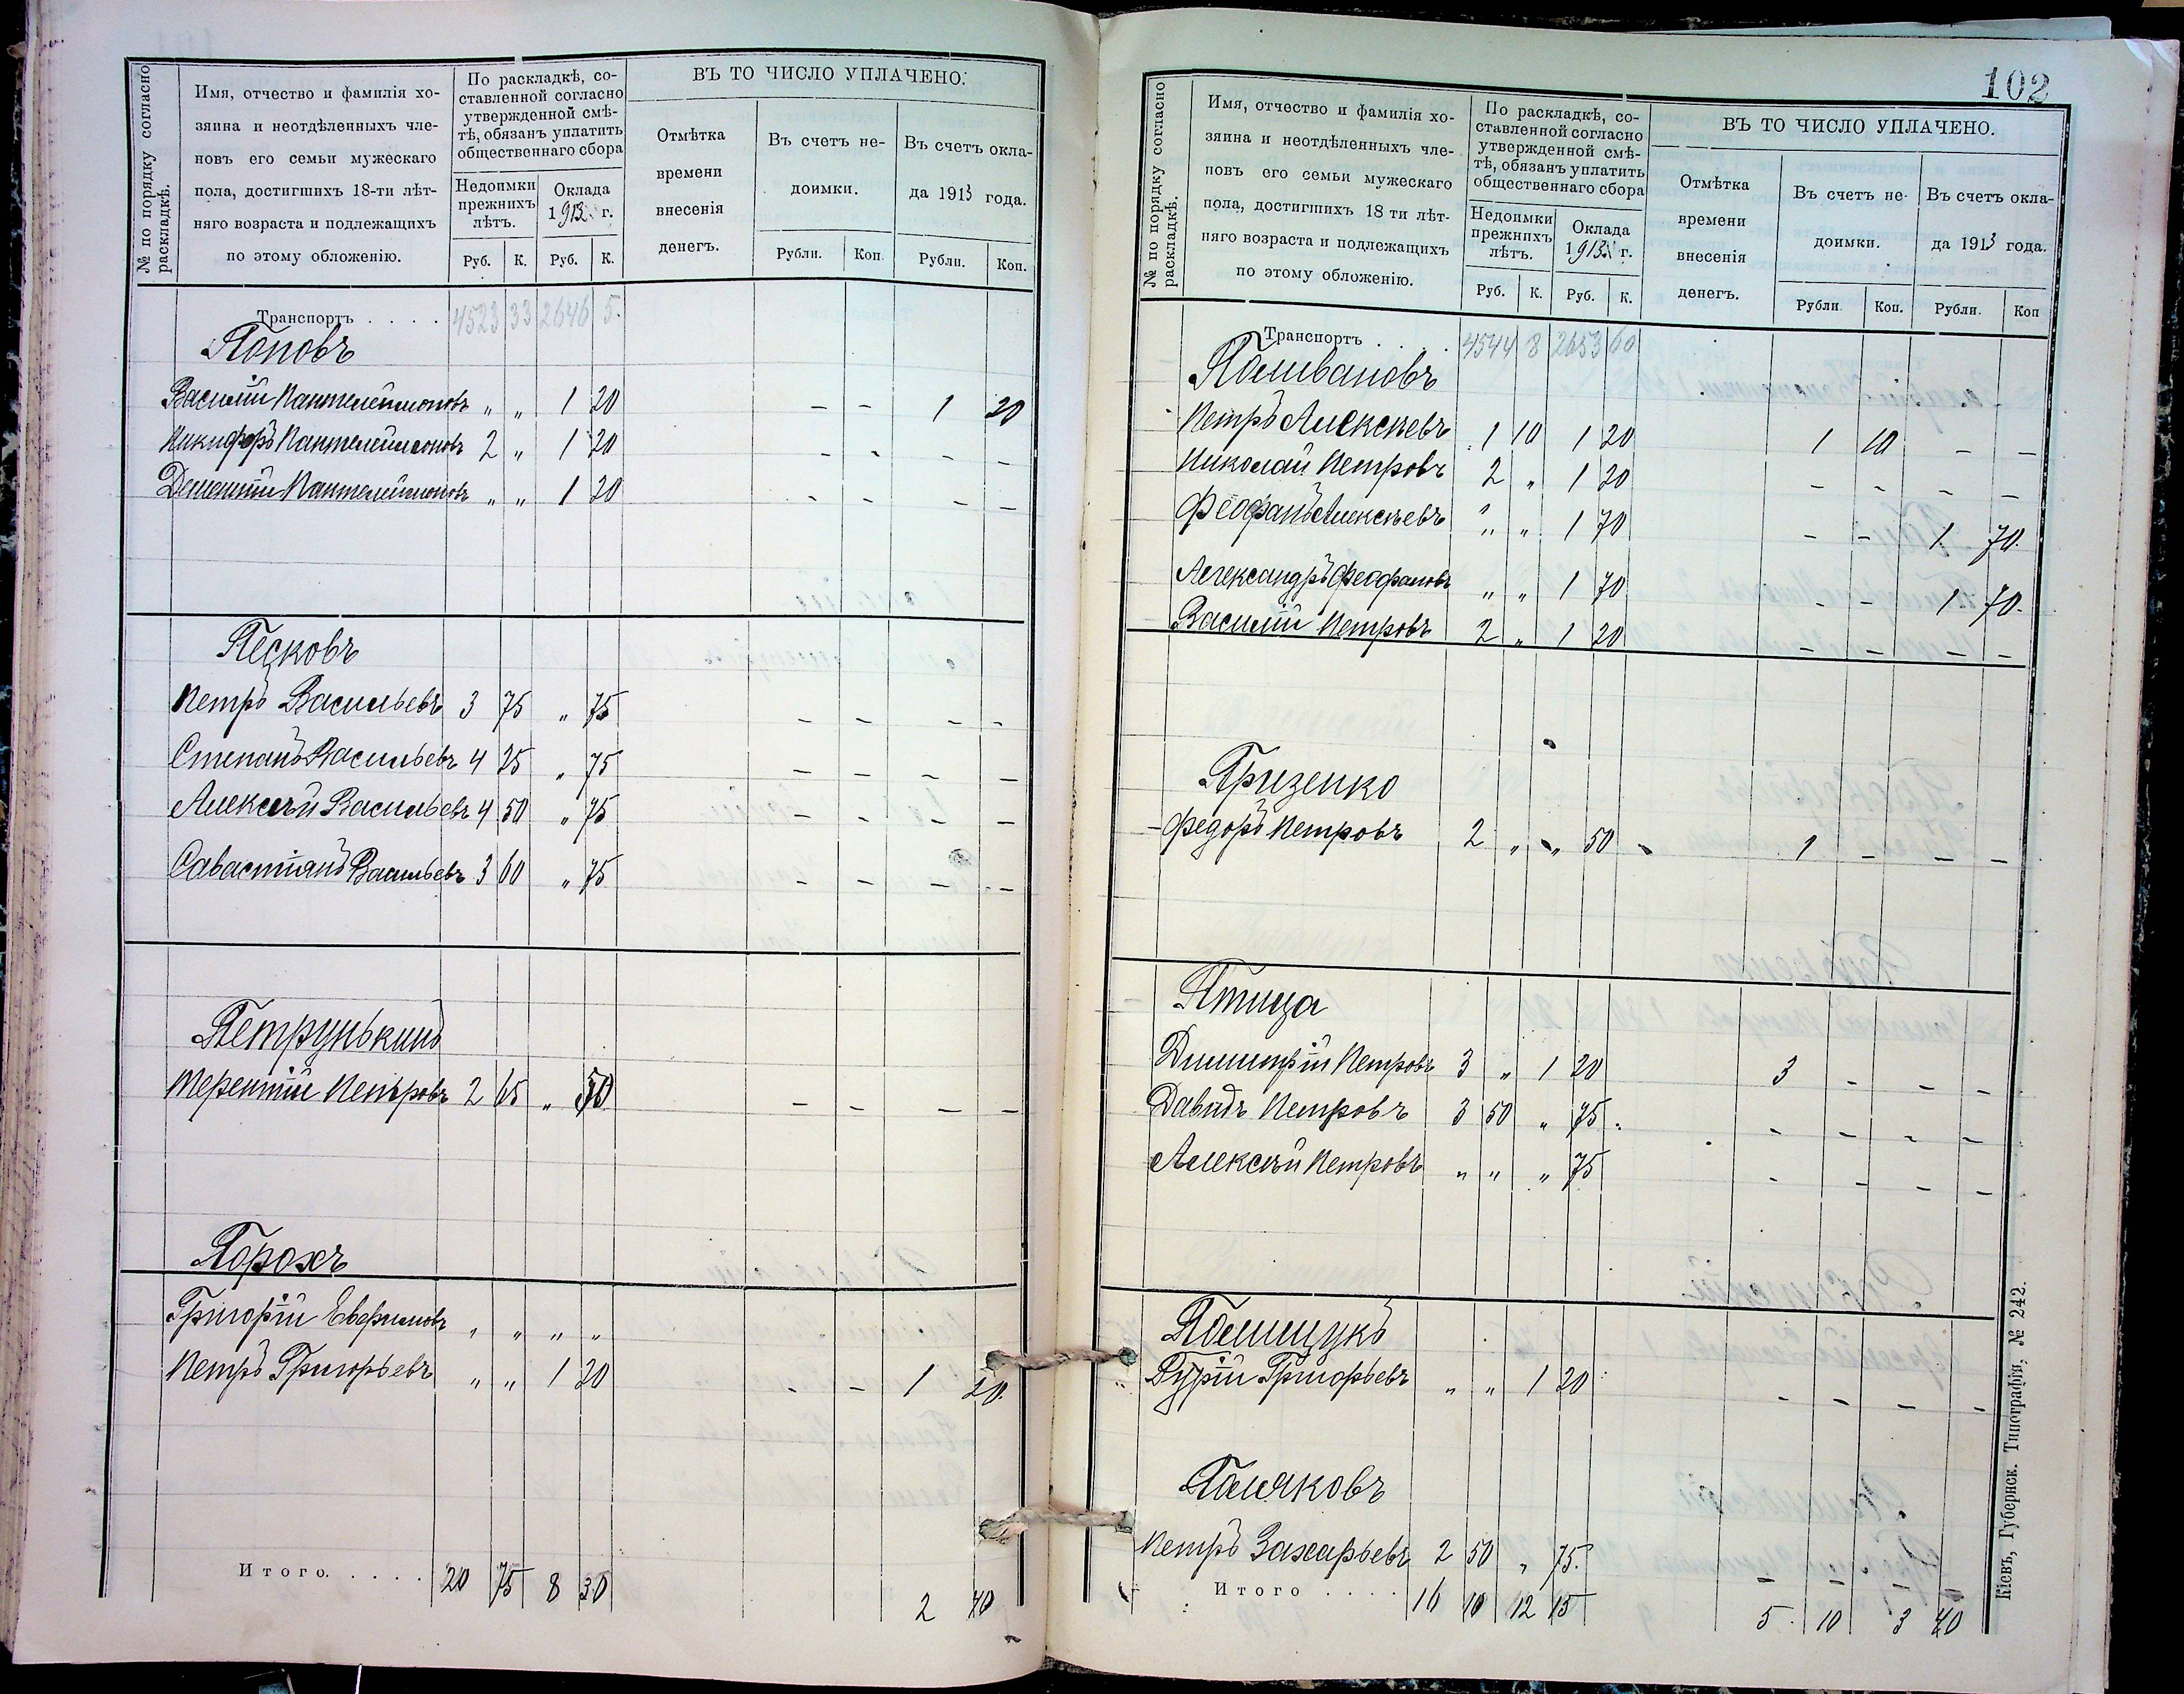 № по порядку согласно раскладкѣ.
Имя, отчество и фамилія хо-
зяина и неотдѣленныхъ чле-
новъ его семьи мужескаго
пола, достигшихъ 18-ти лѣт-
няго возраста и подлежащихъ
по этому обложенію.
По раскладкѣ, со-
ставленной согласно
утвержденной смѣ-
тѣ, обязанъ уплатить
общественнаго сбора
Недоимки прежнихъ лѣтъ.
Оклада 1913 г.
Руб. К. Руб. К.
ВЪ ТО ЧИСЛО УПЛАЧЕНО:
Отмѣтка
времени
внесенія
денегъ.
Въ счетъ не-
доимки.
Въ счетъ окла-
да 1913 года.
Рубли. Коп. Рубли. Коп.
Транспортъ . . . . 4523 33 2646 5.
Поповъ
Василій Пантелеймоновъ „ „ 1 20 – – 1 20
Никифоръ Пантелеймоновъ 2 „ 1 20 – – – –
Дементій Пантелеймоновъ „ „ 1 20 – – – –
Песковъ
Петръ Васильевъ 3 75 „ 75 – – – –
Степанъ Васильевъ 4 25 „ 75 – – – –
Алексѣй Васильевъ 4 50 „ 75 – – – –
Савастіянъ Васильевъ 3 60 „ 75 – – – –
Петрунькинъ
Терентій Петровъ 2 65 „ 50 – – – –
Порохъ
Григорій Евфимовъ „ „ „ „
Петръ Григорьевъ „ „ 1 20 – – 1 20.
Итого. . . . . 20 75 8 30 2 40
102
№ по порядку согласно раскладкѣ.
Имя, отчество и фамилія хо-
зяина и неотдѣленныхъ чле-
новъ его семьи мужескаго
пола, достигшихъ 18 ти лѣт-
няго возраста и подлежащихъ
по этому обложенію.
По раскладкѣ, со-
ставленной согласно
утвержденной смѣ-
тѣ, обязанъ уплатить
общественнаго сбора
Недоимки прежнихъ лѣтъ.
Оклада 1913 г.
Руб. К. Руб. К.
ВЪ ТО ЧИСЛО УПЛАЧЕНО.
Отмѣтка
времени
внесенія
денегъ.
Въ счетъ не-
доимки.
Въ счетъ окла-
да 1913 года.
Рубли. Коп. Рубли. Коп
Транспортъ . . . . 4544 8 2653 60
Поливановъ
Петръ Алексѣевъ 1 10 1 20 1 10 – –
Николай Петровъ 2 „ 1 20 – – – –
Феофанъ Алексѣевъ „ „ 1 70 – – 1 70.
Александръ Феофановъ „ „ 1 70 – – 1 70.
Василій Петровъ 2 „ 1 20 – – – –
Призенко
Федоръ Петровъ 2 „ „ 50 1 – – –
Птица
Димитрій Петровъ 3 „ 1 20 3 – – –
Давидъ Петровъ 3 50 „ 75 – – – –
Алексѣй Петровъ „ „ „ 75 – – – –
Полищукъ
Гурій Григорьевъ „ „ 1 20 – – – –
Поляковъ
Петръ Захарьевъ 2 50 „ 75. – – – –
Итого . . . . 16 10 12 15 5 10 3 40
Кіевъ, Губернск. Типографія, № 242.